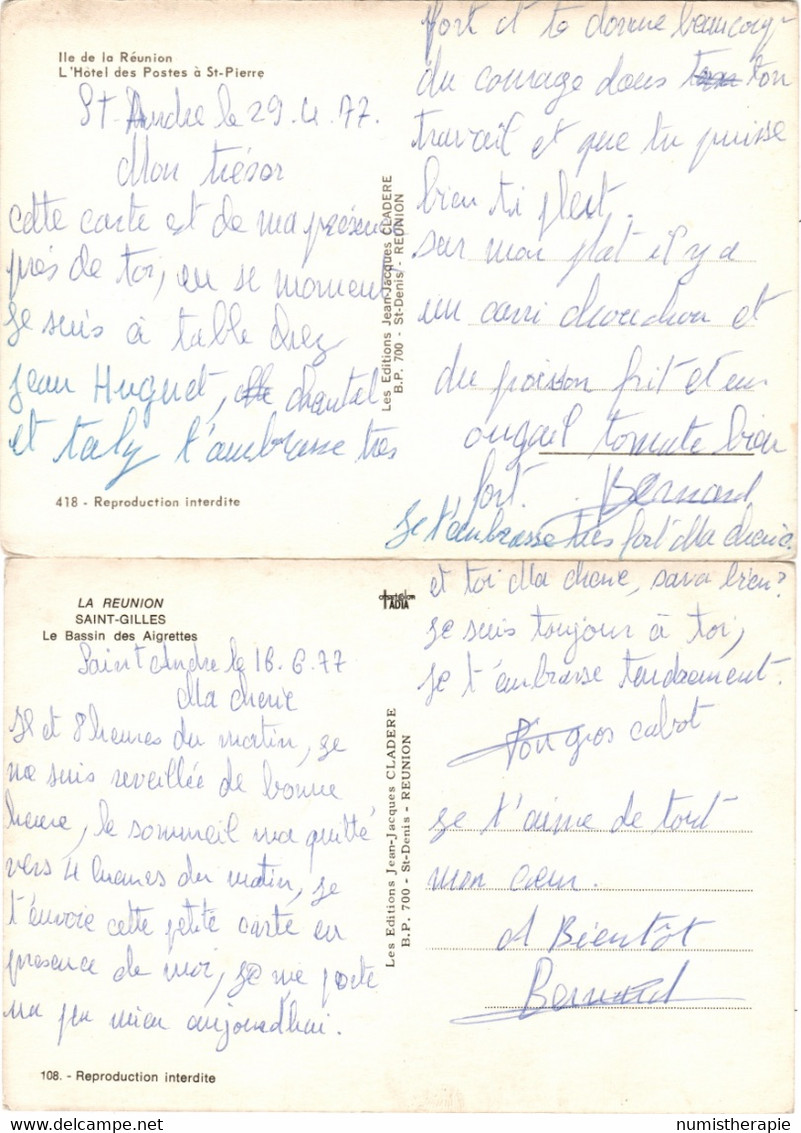 Ile de la Réunion
L'Hôtel des Postes à St-Pierre
St-Andre le 29.4.77.
Mon trésor
cette carte est de ma présence
près de toi, en se moment
Je suis à table chez
Jean Huguet, chantal
et taly t'ambrasse tres
418 - Reproduction interdite
Les Editions Jean-Jacques CLADERE
B.P. 700 - St-Denis - REUNION
fort et te donne beaucoup
du courage dans ton
travail et que tu puisse
bien ti plest.
sur mon plat il y a
un carri chouchou et
du poisson frit et un
ougail tomate bien
fort. Bernard
Je t'embrasse très fort Ma cherie.
LA REUNION
SAINT-GILLES
Le Bassin des Aigrettes
Saint Andre le 16.6.77
Ma cherie
Il et 8 heures du matin, je
me suis reveillée de bonne
heure, le sommeil ma quitté
vers 4 heures du matin, je
t'envoie cette petite carte en
presence de moi, je me porte
un peu mieu aujourdhui.
108. - Reproduction interdite
Les Editions Jean-Jacques CLADERE
B.P. 700 - St-Denis - REUNION
ADIA
et toi Ma cherie, sava bien?
Je suis toujour à toi,
Je t'embrasse tendrement.
Ton gros cabot
Je t'aime de tout
mon cœur.
A Bientôt
Bernard
numistherapie